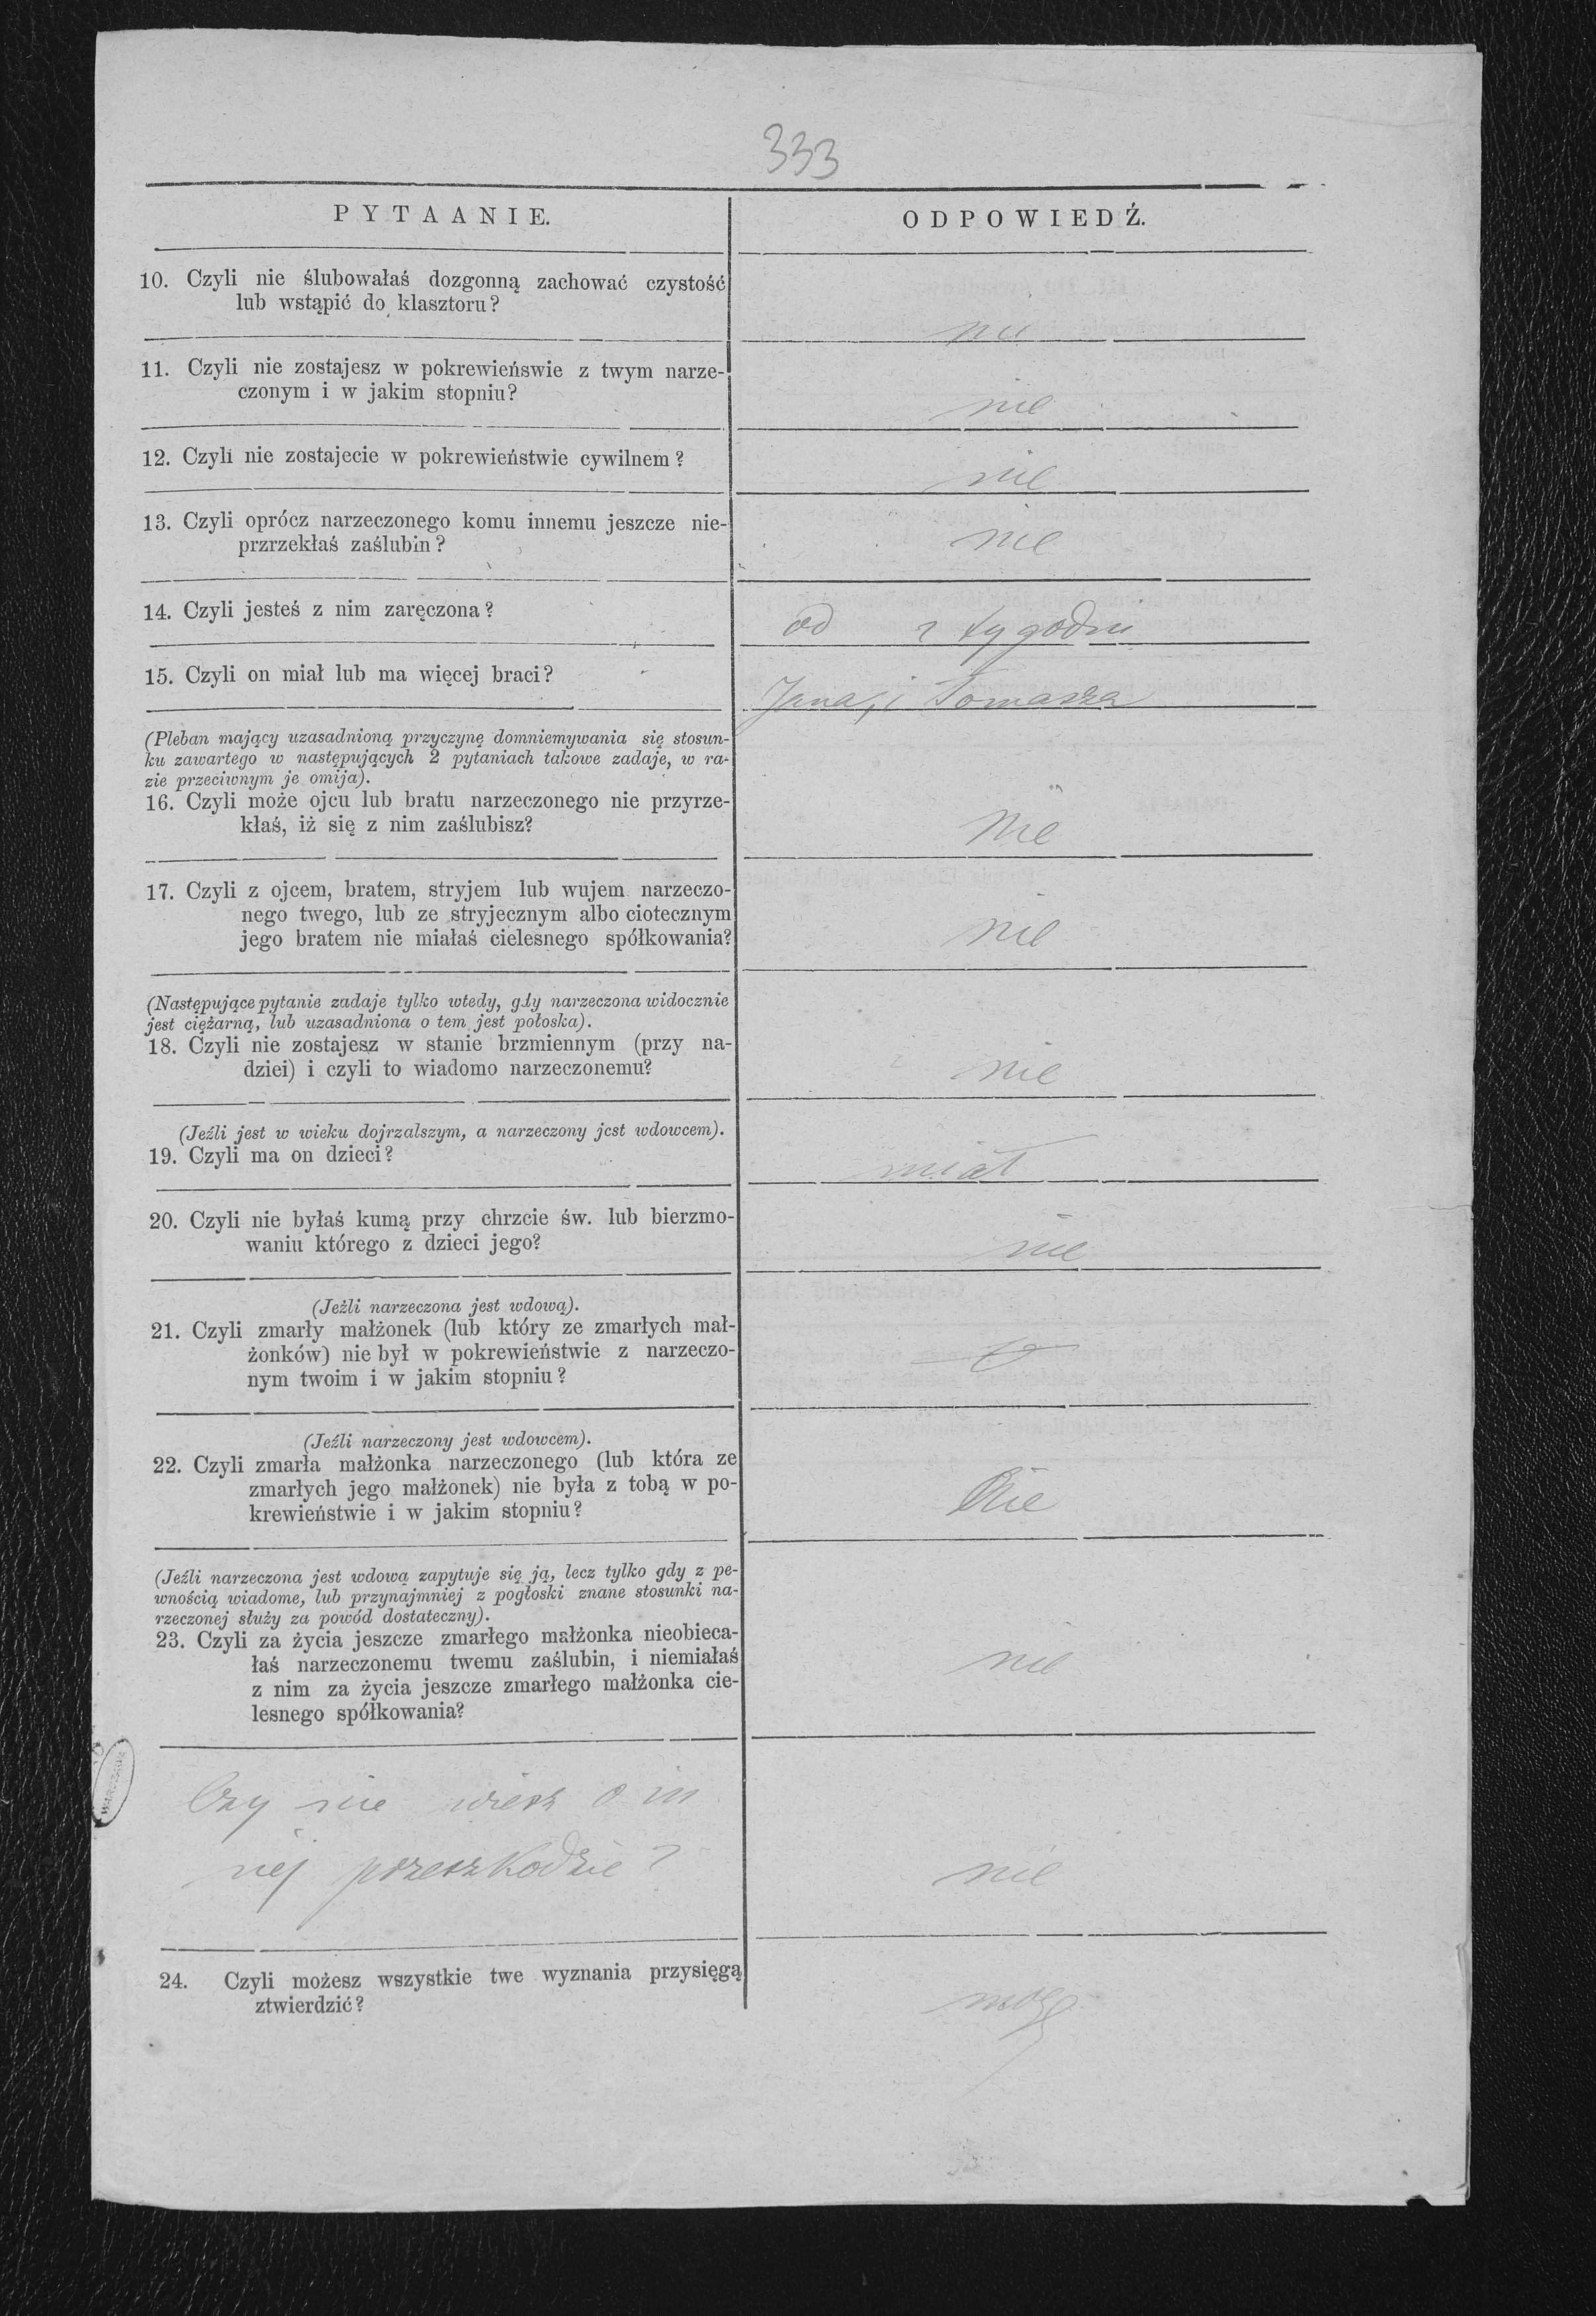 333
PYTAANIE.
ODPOWIEDŹ.
10. Czyli nie ślubowałaś dozgonną zachować czystość
lub wstąpić do klasztoru?
nie
11. Czyli nie zostajesz w pokrewieńswie z twym narze-
czonym i w jakim stopniu?
nie
12. Czyli nie zostajecie w pokrewieństwie cywilnem?
nie
13. Czyli oprócz narzeczonego komu innemu jeszcze nie-
przrzekłaś zaślubin?
nie
14. Czyli jesteś z nim zaręczona?
od 2 tygodni
15. Czyli on miał lub ma więcej braci?
Jana, i Tomasza
(Pleban mający uzasadnioną przyczynę domniemywania się stosun-
ku zawartego w następujących 2 pytaniach takowe zadaje, w ra-
zie przeciwnym je omija).
16. Czyli może ojcu lub bratu narzeczonego nie przyrze-
kłaś, iż się z nim zaślubisz?
nie
17. Czyli z ojcem, bratem, stryjem lub wujem narzeczo-
nego twego, lub ze stryjecznym albo ciotecznym
jego bratem nie miałaś cielesnego spółkowania?
nie
(Następujące pytanie zadaje tylko wtedy, gdy narzeczona widocznie
jest ciężarną, lub uzasadniona o tem jest połoska).
18. Czyli nie zostajesz w stanie brzmiennym (przy na-
dziei) i czyli to wiadomo narzeczonemu?
nie
(Jeźli jest w wieku dojrzalszym, a narzeczony jest wdowcem).
19. Czyli ma on dzieci?
miał
20. Czyli nie byłaś kumą przy chrzcie św. lub bierzmo-
waniu którego z dzieci jego?
nie
(Jeźli narzeczona jest wdową).
21. Czyli zmarły małżonek (lub który ze zmarłych mał-
żonków) nie był w pokrewieństwie z narzeczo-
nym twoim i w jakim stopniu?
(Jeźli narzeczony jest wdowcem).
22. Czyli zmarła małżonka narzeczonego (lub która ze
zmarłych jego małżonek) nie była z tobą w po-
krewieństwie i w jakim stopniu?
Nie
(Jeźli narzeczona jest wdową zapytuje się ją, lecz tylko gdy z pe-
wnością wiadome, lub przynajmniej z pogłoski znane stosunki na-
rzeczonej służy za powód dostateczny).
23. Czyli za życia jeszcze zmarłego małżonka nieobieca-
łaś narzeczonemu twemu zaślubin, i niemiałaś
z nim za życia jeszcze zmarłego małżonka cie-
lesnego spółkowania?
nie
Czy nie wiesz o in
nej przeszkodzie?
nie
24. Czyli możesz wszystkie twe wyznania przysięgą
ztwierdzić?
mogę